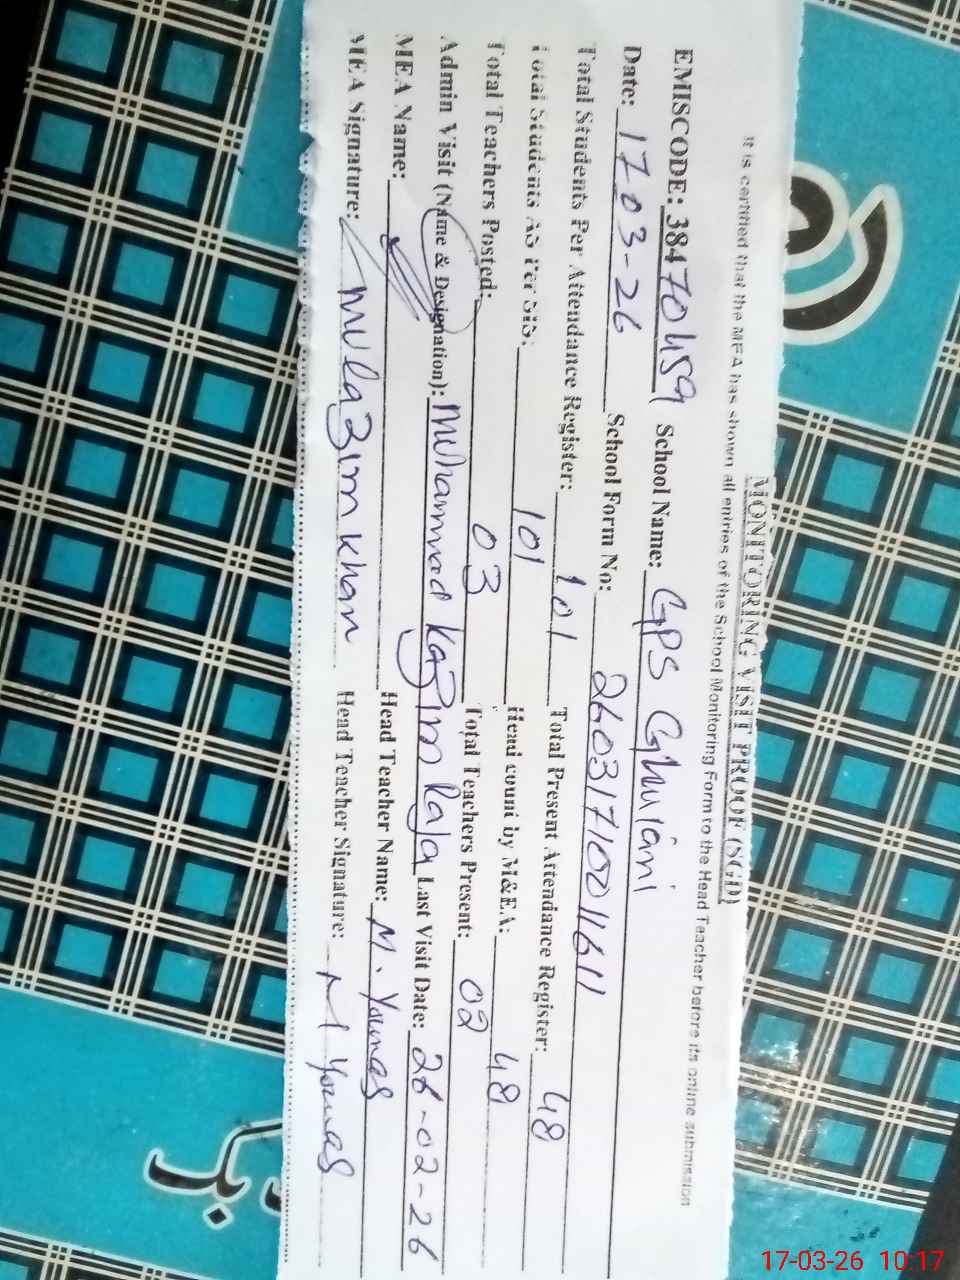 MONITORING VISIT PROOF (SGD)
It is certified that the MEA has shown all entries of the School Monitoring Form to the Head Teacher before its online submission
EMISCODE: 38470459 School Name: GPS Ghulami
Date: 17-03-26 School Form No: 26031710011611
Total Students Per Attendance Register: 101 Total Present Attendance Register: 48
Total Students As Per SIS: 101 Head count by M&EA: 48
Total Teachers Posted: 03 Total Teachers Present: 02
Admin Visit (Name & Designation): Muhammad Kazim Raja Last Visit Date: 26-02-26
MEA Name: Head Teacher Name: M. Younas
MEA Signature: Mulazim Khan Head Teacher Signature: M Younas
17-03-26 10:17